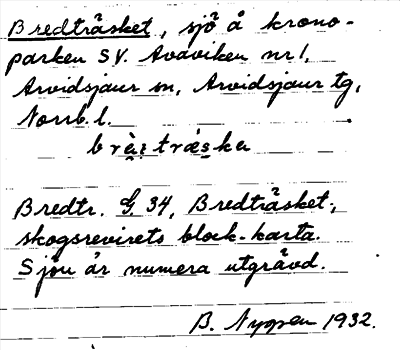 Bredträsket, sjö å krono-
parken SV. Avaviken nr 1,
Arvidsjaur sn, Arvidsjaur tg,
Norrb. l.
Bredtr. G. 34, Bredträsket,
skogsrevirets block-karta.
Sjön är numera utgrävd.
B. Nygren 1932.